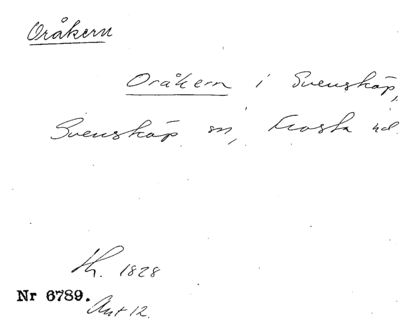 Oråkern
Oråkern i Svensköp,
Svensköp sn, Frosta hd.
Th. 1828
Nr 6789.
Akt 12.